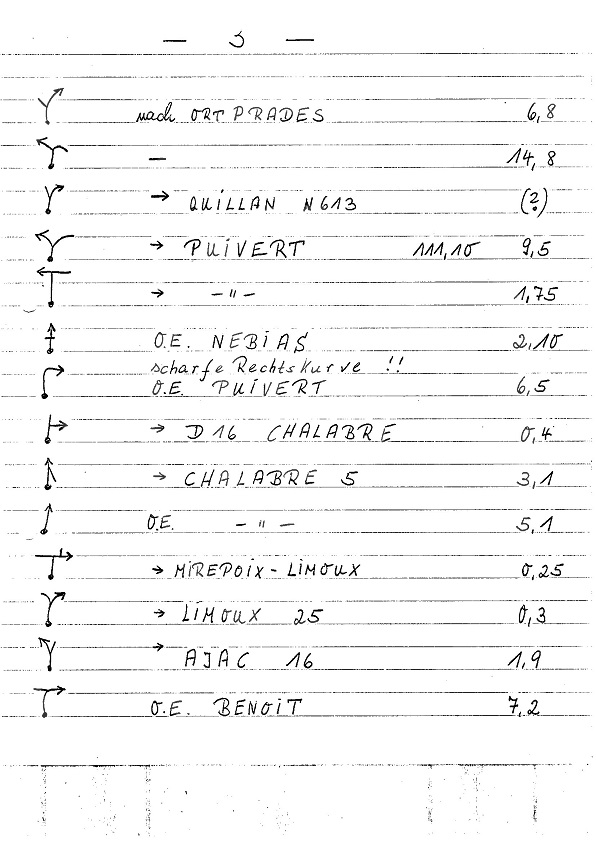 — 3 —
nach ORT PRADES 6,8
— 14,8
→ QUILLAN N613 (?)
→ PUIVERT 111,10 9,5
→ —"— 1,75
O.E. NEBIAS 2,10
scharfe Rechtskurve !!
O.E. PUIVERT 6,5
→ D16 CHALABRE 0,4
→ CHALABRE 5 3,1
O.E. —"— 5,1
→ MIREPOIX - LIMOUX 0,25
→ LIMOUX 25 0,3
→ AJAC 16 1,9
O.E. BENOIT 7,2